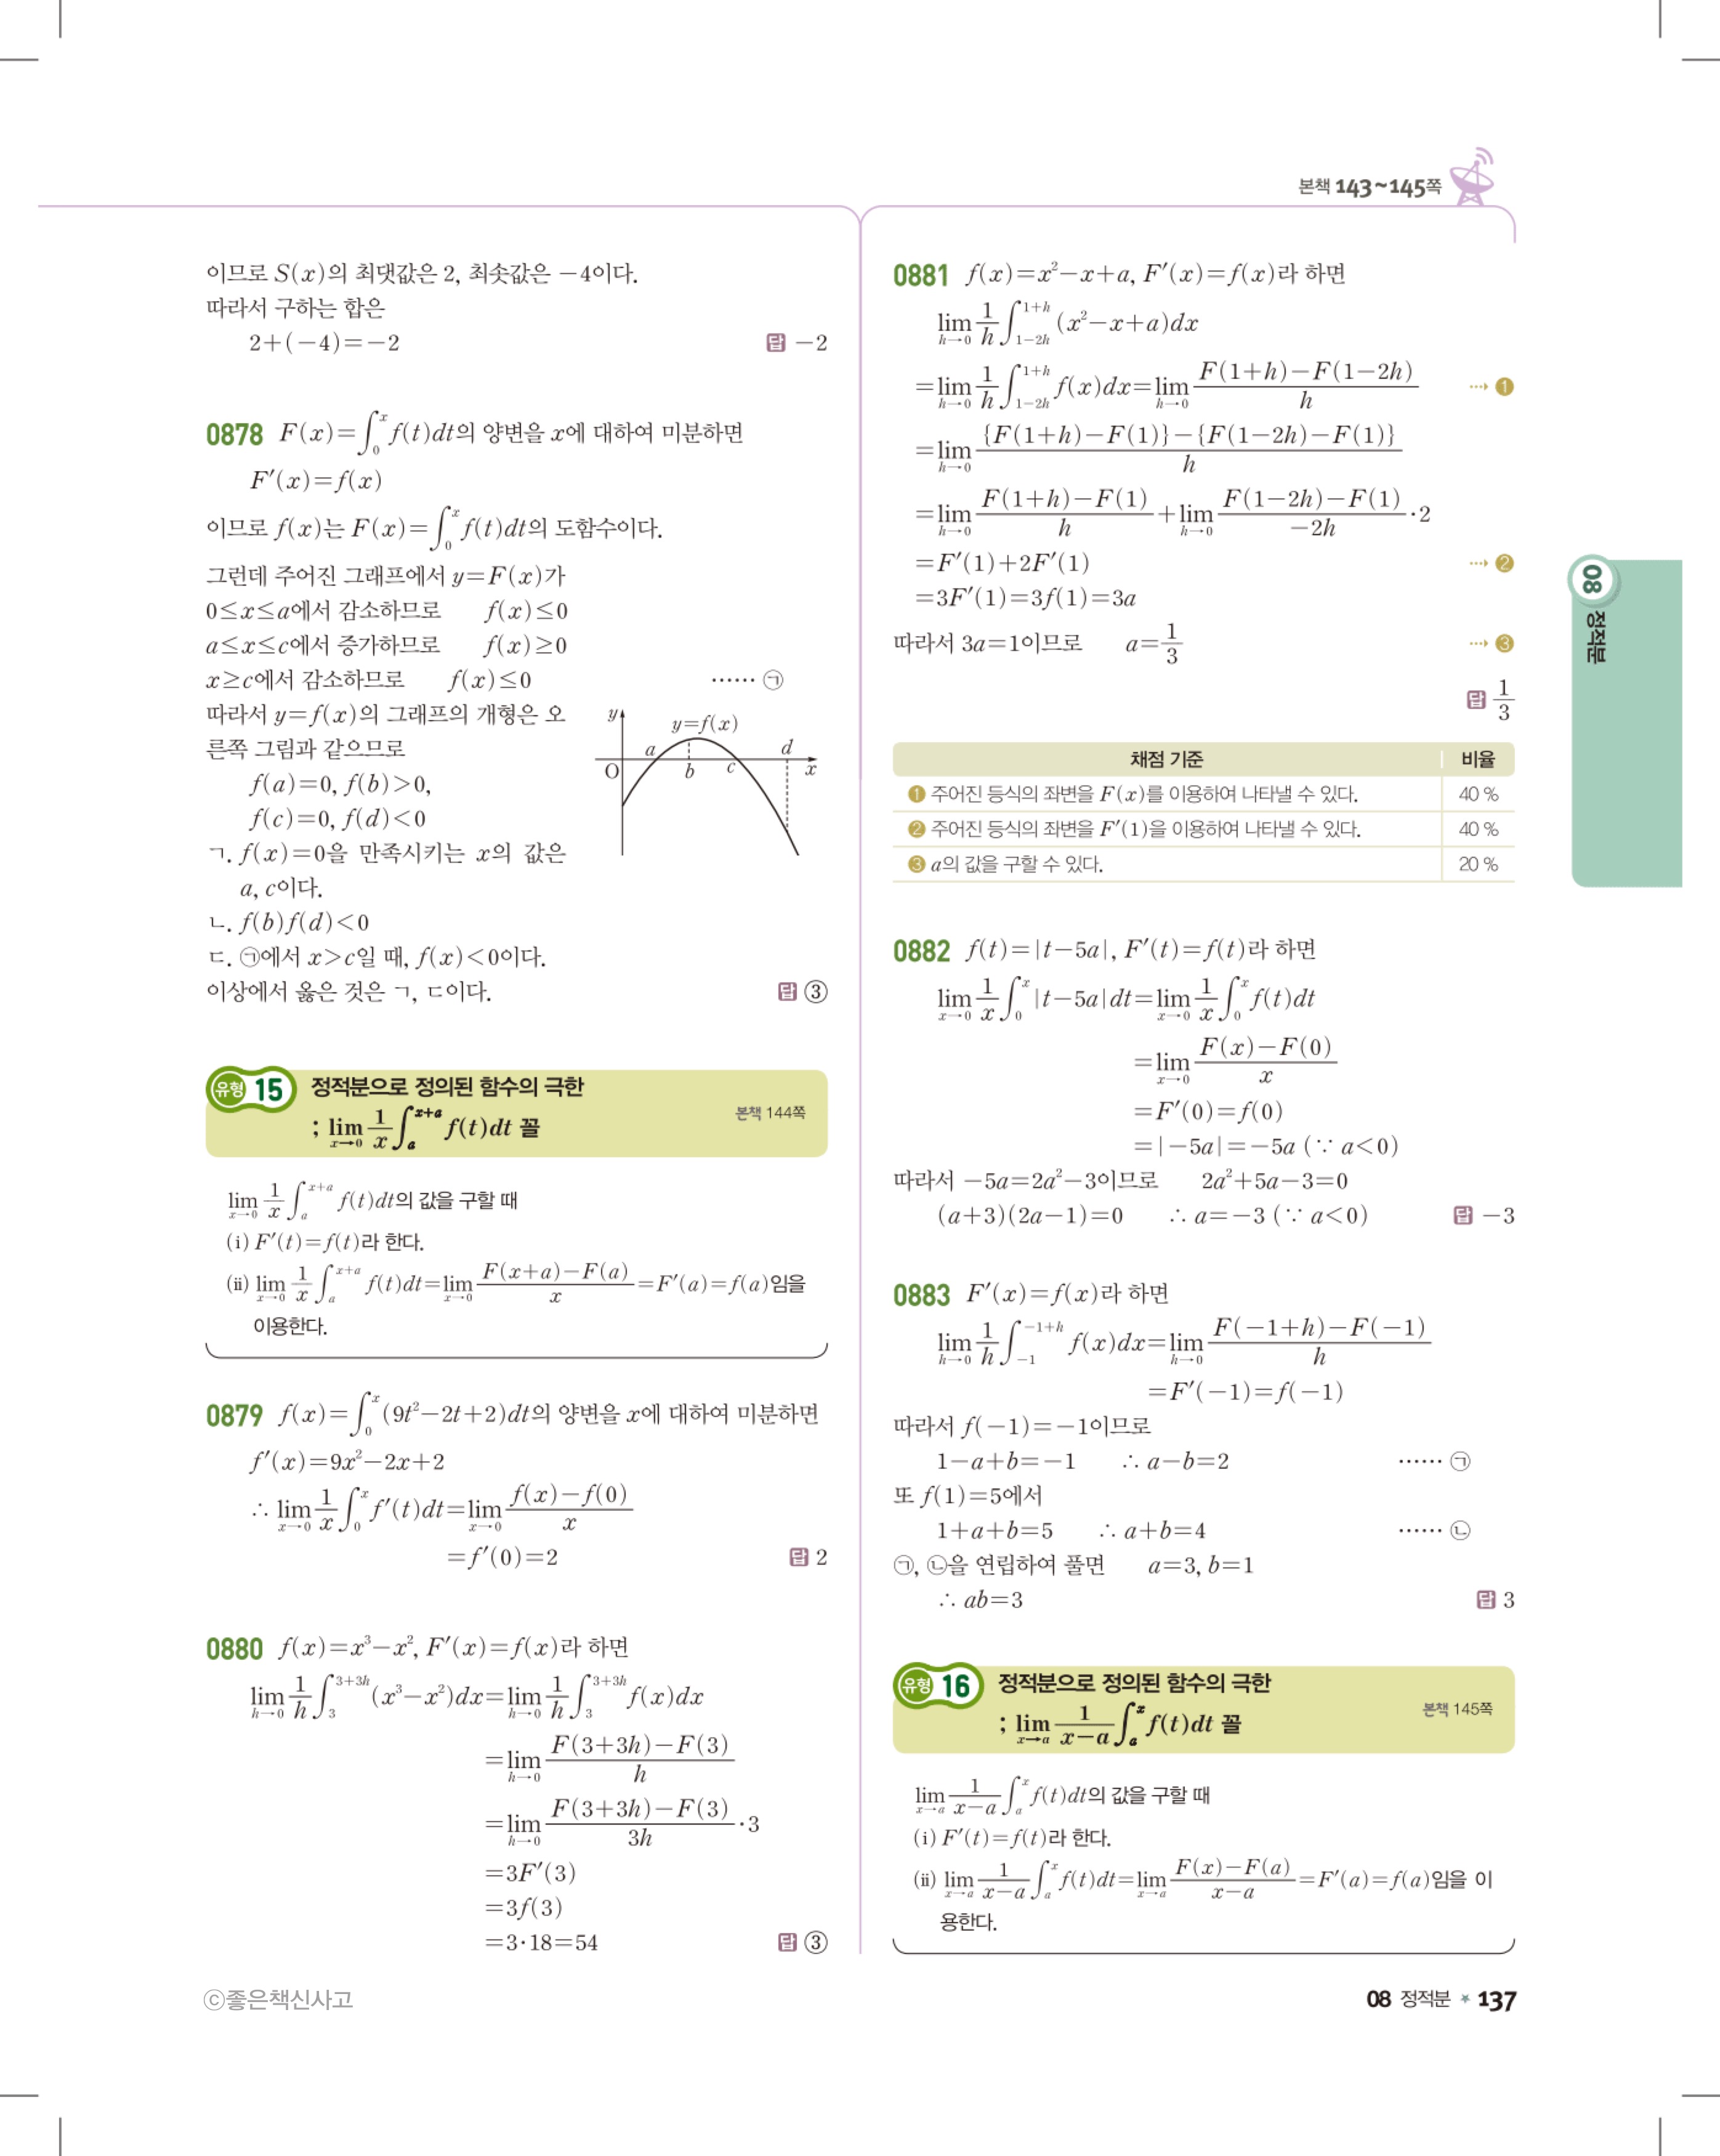 본책 143~145쪽
이므로 S(x)의 최댓값은 2, 최솟값은 −4이다.
따라서 구하는 합은
2+(−4)=−2 답 −2
0878 F(x)=∫₀ˣ f(t)dt의 양변을 x에 대하여 미분하면
F′(x)=f(x)
이므로 f(x)는 F(x)=∫₀ˣ f(t)dt의 도함수이다.
그런데 주어진 그래프에서 y=F(x)가
0≤x≤a에서 감소하므로 f(x)≤0
a≤x≤c에서 증가하므로 f(x)≥0
x≥c에서 감소하므로 f(x)≤0 …… ㉠
따라서 y=f(x)의 그래프의 개형은 오
른쪽 그림과 같으므로
f(a)=0, f(b)>0,
f(c)=0, f(d)<0
y y=f(x) a d O b c x
ㄱ. f(x)=0을 만족시키는 x의 값은
a, c이다.
ㄴ. f(b)f(d)<0
ㄷ. ㉠에서 x>c일 때, f(x)<0이다.
이상에서 옳은 것은 ㄱ, ㄷ이다. 답 ③
유형 15 정적분으로 정의된 함수의 극한
; lim_{x→0} 1/x ∫_a^{x+a} f(t)dt 꼴 본책 144쪽
lim_{x→0} 1/x ∫_a^{x+a} f(t)dt의 값을 구할 때
(ⅰ) F′(t)=f(t)라 한다.
(ⅱ) lim_{x→0} 1/x ∫_a^{x+a} f(t)dt=lim_{x→0} {F(x+a)−F(a)}/x=F′(a)=f(a)임을
이용한다.
0879 f(x)=∫₀ˣ (9t²−2t+2)dt의 양변을 x에 대하여 미분하면
f′(x)=9x²−2x+2
∴ lim_{x→0} 1/x ∫₀ˣ f′(t)dt=lim_{x→0} {f(x)−f(0)}/x
=f′(0)=2 답 2
0880 f(x)=x³−x², F′(x)=f(x)라 하면
lim_{h→0} 1/h ∫_3^{3+3h} (x³−x²)dx=lim_{h→0} 1/h ∫_3^{3+3h} f(x)dx
=lim_{h→0} {F(3+3h)−F(3)}/h
=lim_{h→0} {F(3+3h)−F(3)}/3h·3
=3F′(3)
=3f(3)
=3·18=54 답 ③
0881 f(x)=x²−x+a, F′(x)=f(x)라 하면
lim_{h→0} 1/h ∫_{1−2h}^{1+h} (x²−x+a)dx
=lim_{h→0} 1/h ∫_{1−2h}^{1+h} f(x)dx=lim_{h→0} {F(1+h)−F(1−2h)}/h ⋯ ❶
=lim_{h→0} [{F(1+h)−F(1)}−{F(1−2h)−F(1)}]/h
=lim_{h→0} {F(1+h)−F(1)}/h+lim_{h→0} {F(1−2h)−F(1)}/−2h·2
=F′(1)+2F′(1) ⋯ ❷
=3F′(1)=3f(1)=3a
따라서 3a=1이므로 a=1/3 ⋯ ❸
답 1/3
채점 기준 비율
❶ 주어진 등식의 좌변을 F(x)를 이용하여 나타낼 수 있다. 40 %
❷ 주어진 등식의 좌변을 F′(1)을 이용하여 나타낼 수 있다. 40 %
❸ a의 값을 구할 수 있다. 20 %
0882 f(t)=|t−5a|, F′(t)=f(t)라 하면
lim_{x→0} 1/x ∫₀ˣ |t−5a|dt=lim_{x→0} 1/x ∫₀ˣ f(t)dt
=lim_{x→0} {F(x)−F(0)}/x
=F′(0)=f(0)
=|−5a|=−5a (∵ a<0)
따라서 −5a=2a²−3이므로 2a²+5a−3=0
(a+3)(2a−1)=0 ∴ a=−3 (∵ a<0) 답 −3
0883 F′(x)=f(x)라 하면
lim_{h→0} 1/h ∫_{−1}^{−1+h} f(x)dx=lim_{h→0} {F(−1+h)−F(−1)}/h
=F′(−1)=f(−1)
따라서 f(−1)=−1이므로
1−a+b=−1 ∴ a−b=2 …… ㉠
또 f(1)=5에서
1+a+b=5 ∴ a+b=4 …… ㉡
㉠, ㉡을 연립하여 풀면 a=3, b=1
∴ ab=3 답 3
유형 16 정적분으로 정의된 함수의 극한
; lim_{x→a} 1/(x−a) ∫_a^x f(t)dt 꼴 본책 145쪽
lim_{x→a} 1/(x−a) ∫_a^x f(t)dt의 값을 구할 때
(ⅰ) F′(t)=f(t)라 한다.
(ⅱ) lim_{x→a} 1/(x−a) ∫_a^x f(t)dt=lim_{x→a} {F(x)−F(a)}/(x−a)=F′(a)=f(a)임을 이
용한다.
08 정적분
ⓒ좋은책신사고
08 정적분 ★ 137